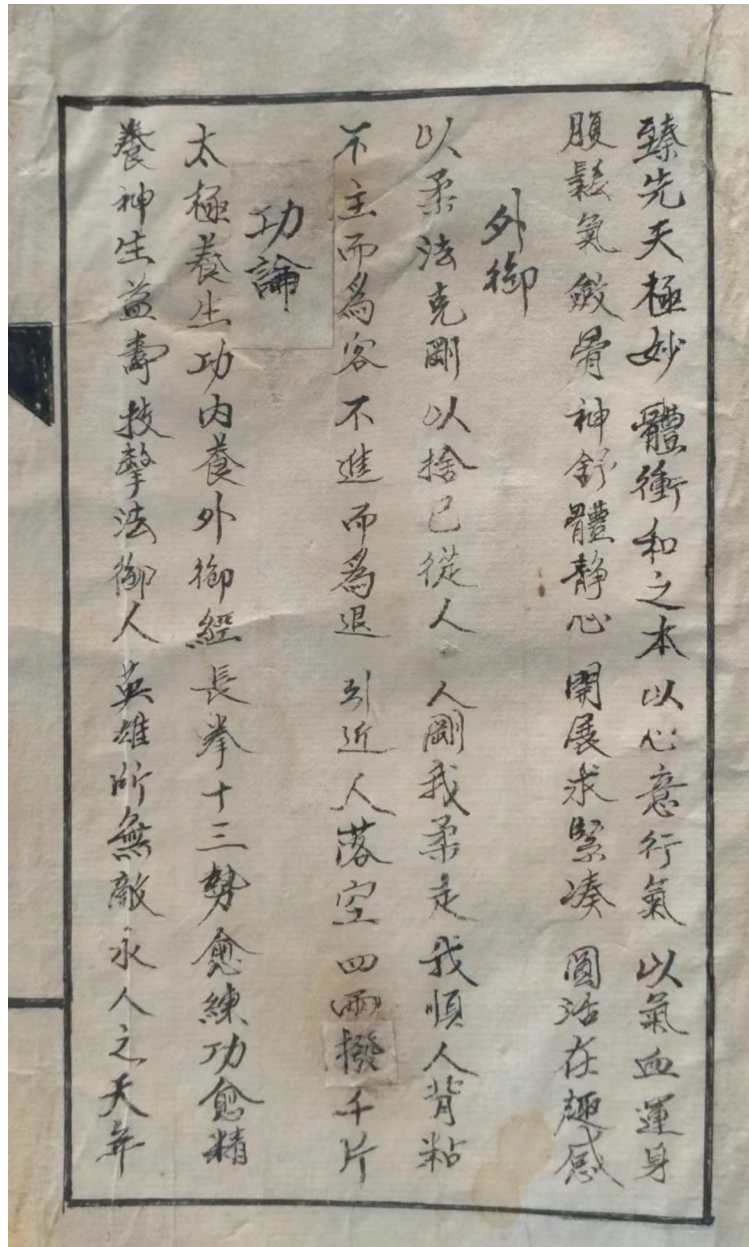 臻先天極妙 體衝和之本以心意行氣 以氣血運身
腹鬆氣斂骨神舒體靜心 開展求緊凑 圓活在趣感
外御
以柔法克剛以捨己從人 人剛我柔走我順人背粘
不主而為客不進而為退 引近人落空四兩撥千斤
功論
太極養生功內養外御經長拳十三勢愈練功愈精
養神生益壽技擊法御人英雄所無敵永人之天年